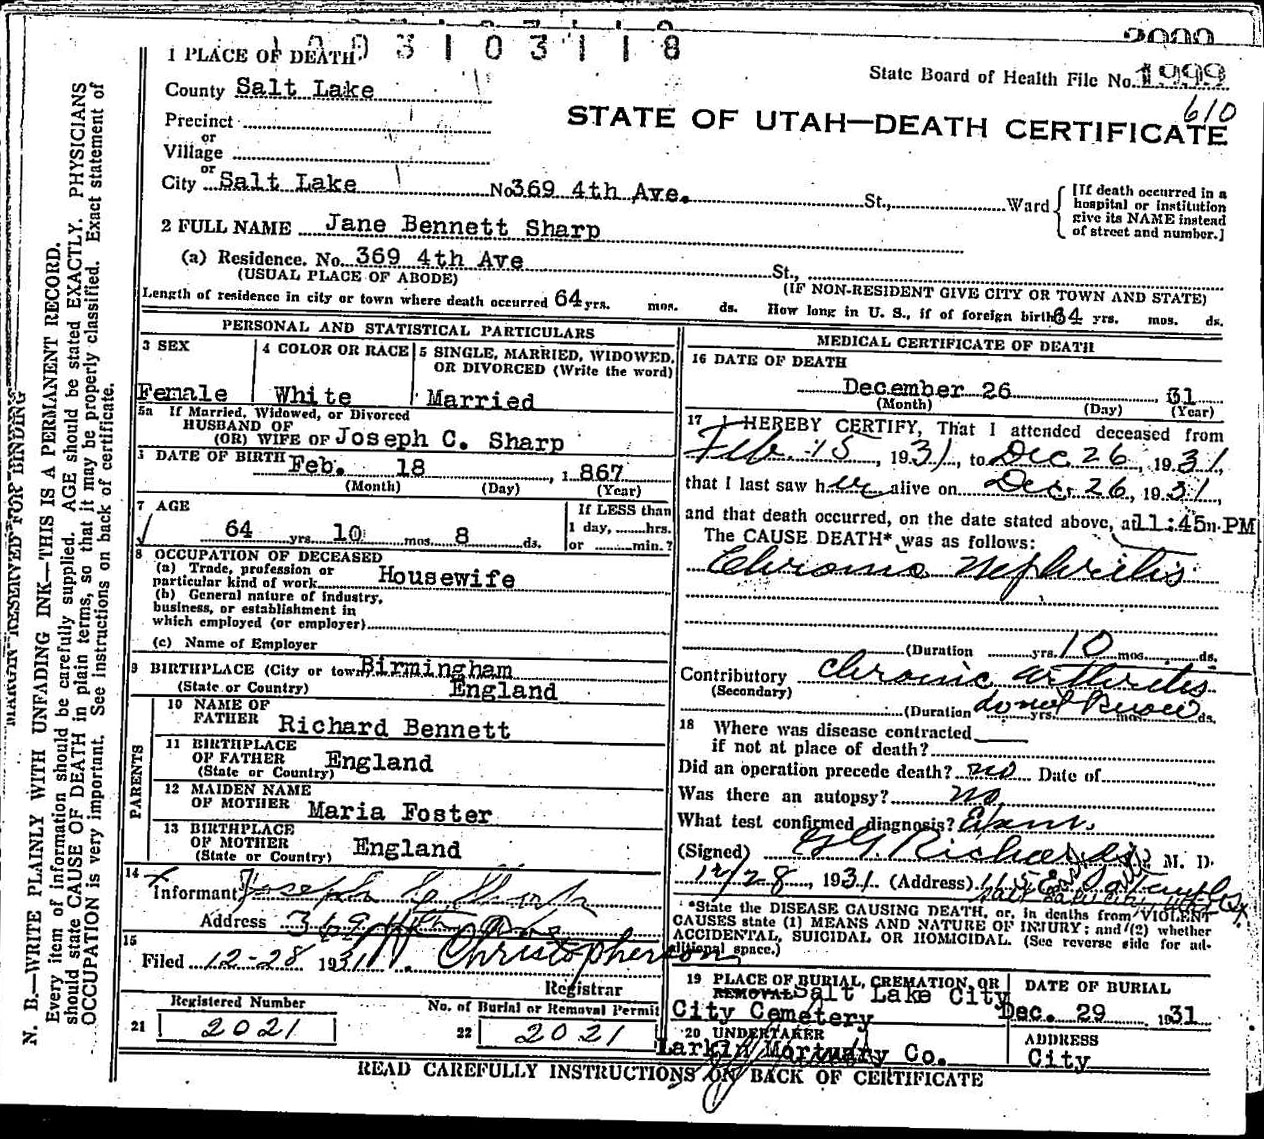 1003103118
2000
1 PLACE OF DEATH
State Board of Health File No. 1999
County Salt Lake
610
STATE OF UTAH—DEATH CERTIFICATE
Precinct
or
Village
or
City Salt Lake No 369 4th Ave. St., Ward
[If death occurred in a hospital or institution give its NAME instead of street and number.]
2 FULL NAME Jane Bennett Sharp
(a) Residence. No. 369 4th Ave St.,
(USUAL PLACE OF ABODE) (IF NON-RESIDENT GIVE CITY OR TOWN AND STATE)
Length of residence in city or town where death occurred 64 yrs. mos. ds. How long in U. S., if of foreign birth 64 yrs. mos. ds.
PERSONAL AND STATISTICAL PARTICULARS
3 SEX
Female
4 COLOR OR RACE
White
5 SINGLE, MARRIED, WIDOWED,
OR DIVORCED (Write the word)
Married
5a If Married, Widowed, or Divorced
HUSBAND OF
(OR) WIFE OF Joseph C. Sharp
DATE OF BIRTH Feb. 18, 1867
(Month) (Day) (Year)
7 AGE
64 yrs. 10 mos. 8 ds.
If LESS than
1 day, hrs.
or min.?
8 OCCUPATION OF DECEASED
(a) Trade, profession or
particular kind of work Housewife
(b) General nature of industry,
business, or establishment in
which employed (or employer)
(c) Name of Employer
9 BIRTHPLACE (City or town) Birmingham
(State or Country) England
PARENTS
10 NAME OF
FATHER Richard Bennett
11 BIRTHPLACE
OF FATHER England
(State or Country)
12 MAIDEN NAME
OF MOTHER Maria Foster
13 BIRTHPLACE
OF MOTHER England
(State or Country)
14
Informant Joseph C. Sharp
Address 369 4th Ave
15
Filed 12-28 1931 Christopherson
Registrar
Registered Number
21 2021
No. of Burial or Removal Permit
22 2021
MEDICAL CERTIFICATE OF DEATH
16 DATE OF DEATH
December 26 31
(Month) (Day) (Year)
17 I HEREBY CERTIFY, That I attended deceased from
Feb. 15, 1931, to Dec. 26, 1931,
that I last saw her alive on Dec. 26, 1931,
and that death occurred, on the date stated above, at 11:45 m. PM
The CAUSE DEATH* was as follows:
Chronic Nephritis
(Duration yrs. 10 mos. ds.
Contributory Chronic arthritis
(Secondary)
(Duration do not know yrs. mos. ds.
18 Where was disease contracted
if not at place of death?
Did an operation precede death? no Date of
Was there an autopsy? no
What test confirmed diagnosis? Exam.
(Signed) G. G. Richards M. D.
12/28, 1931 (Address) 115 East So Temple
Salt Lake City, Utah
*State the DISEASE CAUSING DEATH, or, in deaths from VIOLENT
CAUSES state (1) MEANS AND NATURE OF INJURY; and (2) whether
ACCIDENTAL, SUICIDAL OR HOMICIDAL. (See reverse side for ad-
ditional space.)
19 PLACE OF BURIAL, CREMATION, OR
REMOVAL Salt Lake City
City Cemetery
DATE OF BURIAL
Dec. 29 1931
20 UNDERTAKER
Larkin Mortuary Co.
ADDRESS
City
READ CAREFULLY INSTRUCTIONS ON BACK OF CERTIFICATE
MARGIN RESERVED FOR BINDING
N. B.—WRITE PLAINLY WITH UNFADING INK—THIS IS A PERMANENT RECORD.
Every item of information should be carefully supplied. AGE should be stated EXACTLY. PHYSICIANS
should state CAUSE OF DEATH in plain terms, so that it may be properly classified. Exact statement of
OCCUPATION is very important. See instructions on back of certificate.